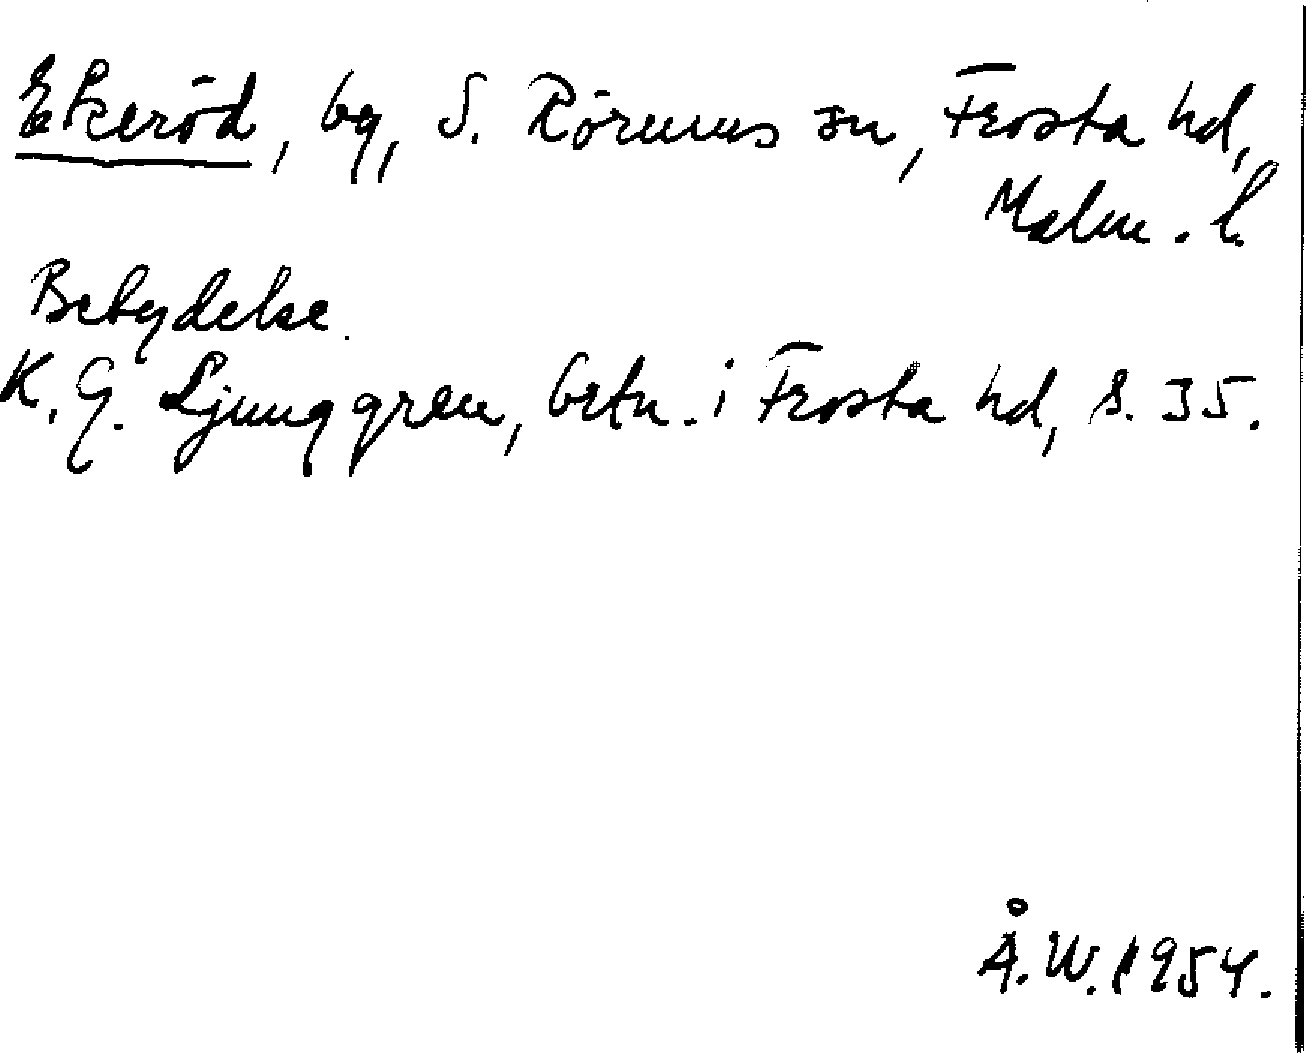 Ekeröd, bg, S. Rörums sn, Frosta hd,
Malm. l.
Betydelse.
K. G. Ljunggren, bebn. i Frosta hd, s. 35.
Å. W. 1954.